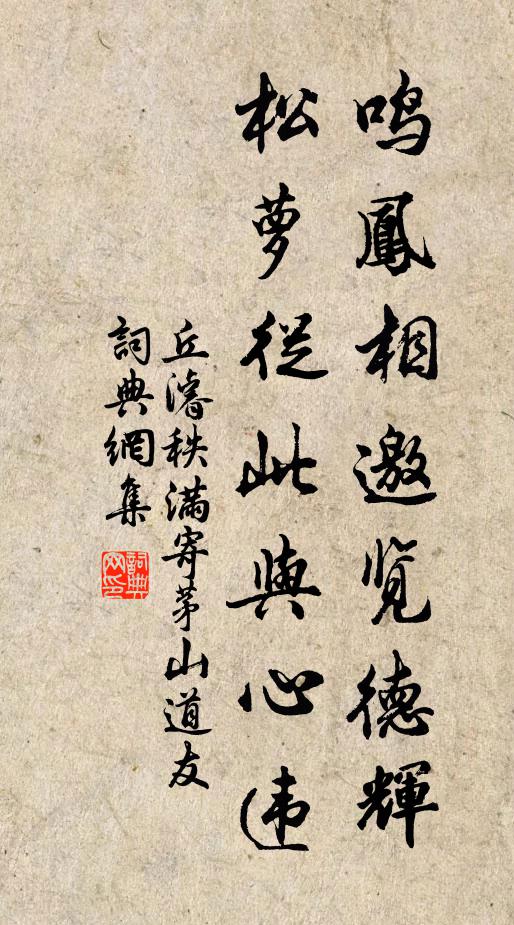 鸣鳳相邀览德輝
松萝從此與心违
丘濬秩满寄茅山道友
詞典網集
詞典网印